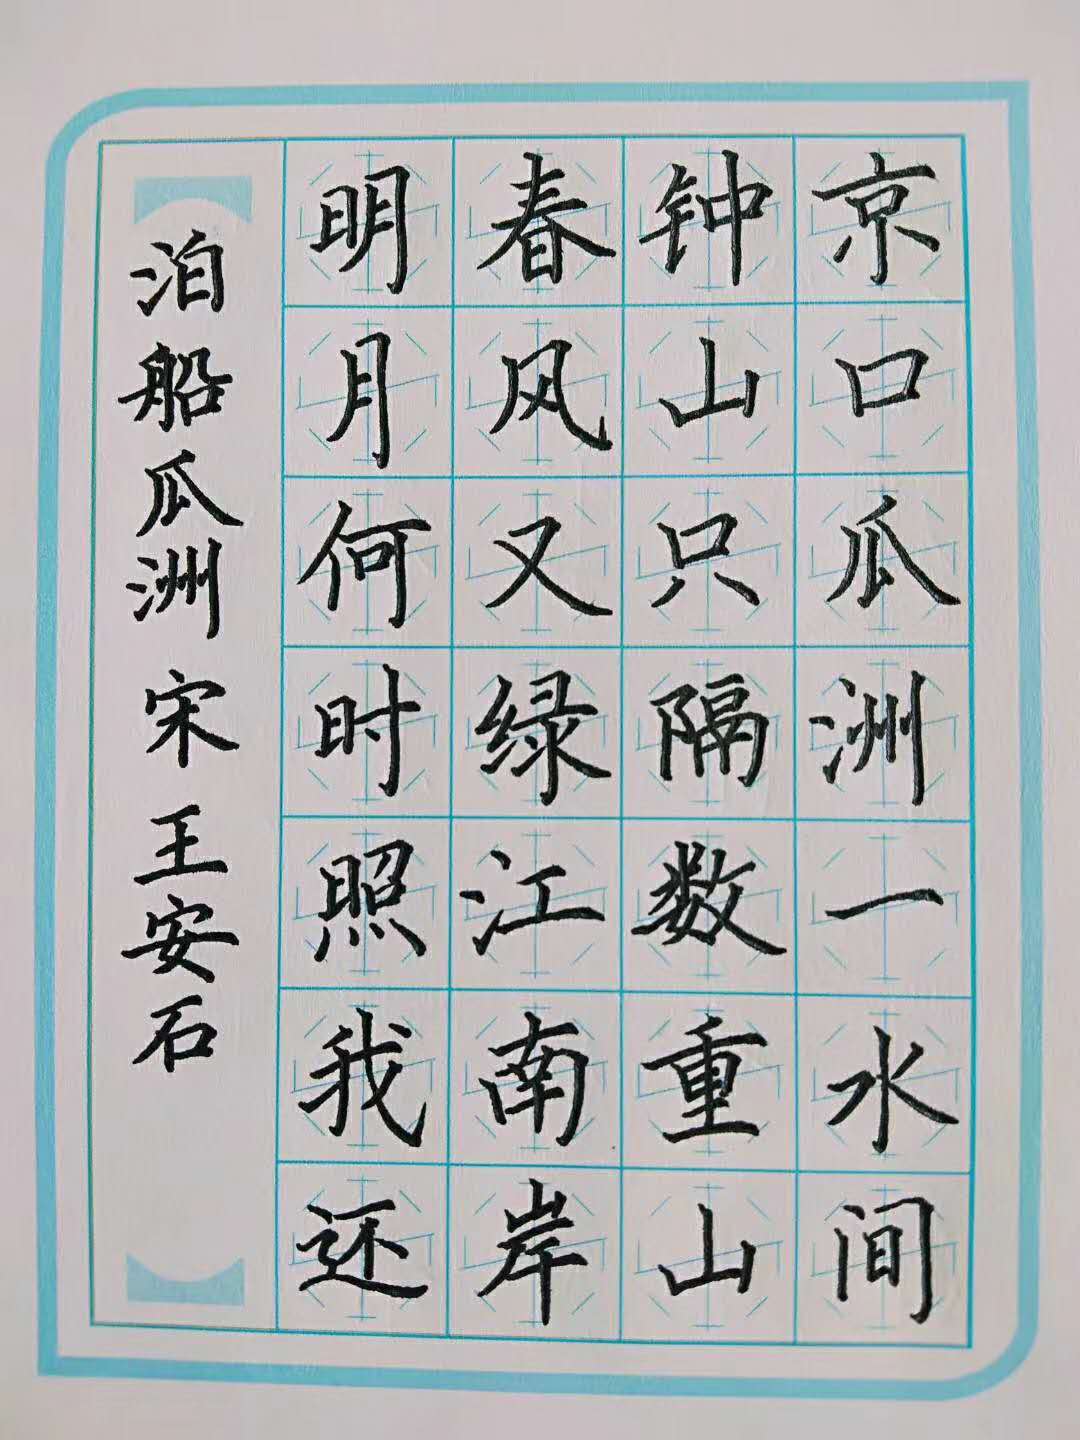 京口瓜洲一水间
钟山只隔数重山
春风又绿江南岸
明月何时照我还
泊船瓜洲 宋 王安石